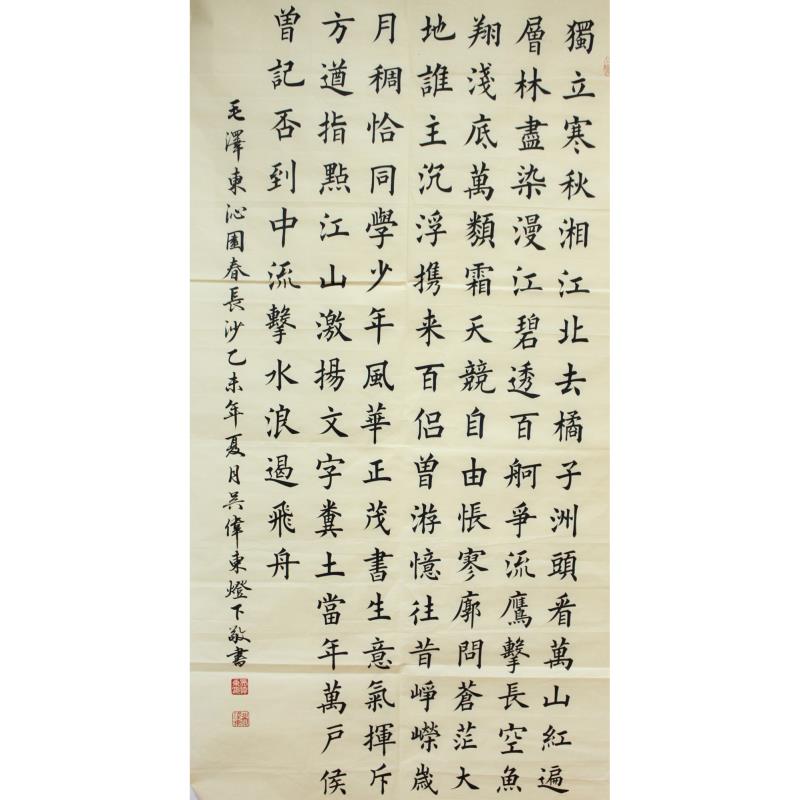 獨立寒秋湘江北去橘子洲頭看萬山紅遍
層林盡染漫江碧透百舸爭流鷹擊長空魚
翔淺底萬類霜天競自由悵寥廓問蒼茫大
地誰主沉浮携来百侣曾游憶往昔崢嶸歲
月稠恰同學少年風華正茂書生意氣揮斥
方遒指點江山激揚文字糞土當年萬户侯
曾記否到中流擊水浪遏飛舟
毛澤東沁園春長沙乙未年夏月吴偉東燈下敬書